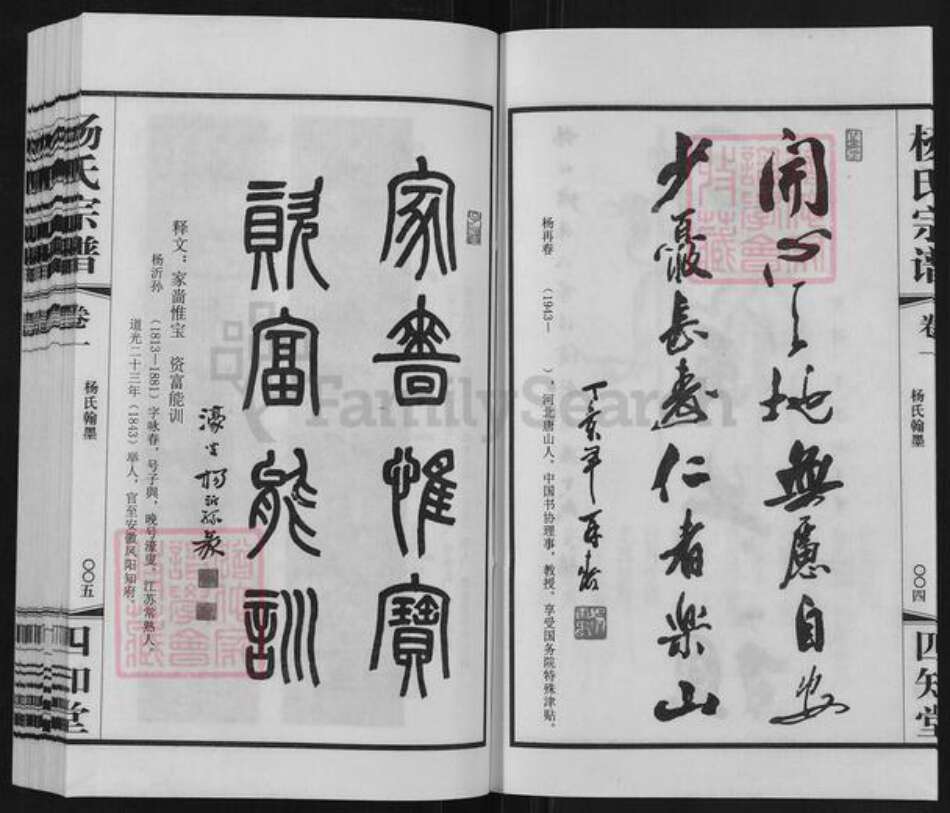 杨氏宗谱
卷一
杨氏翰墨
〇〇四
四知堂
開心之地無慮自安
少寢長壽仁者樂山
丁亥年 再春
杨再春 (1943— ),河北唐山人,中国书协理事,教授,享受国务院特殊津贴。
家啬惟寶
資富能訓
濠叟楊沂孫篆
释文:家啬惟宝 资富能训
杨沂孙 (1813—1881)字咏春,号子與,晚号濠叟,江苏常熟人。
道光二十三年(1843)举人,官至安徽凤阳知府。
杨氏宗谱
卷一
杨氏翰墨
〇〇五
四知堂
FamilySearch